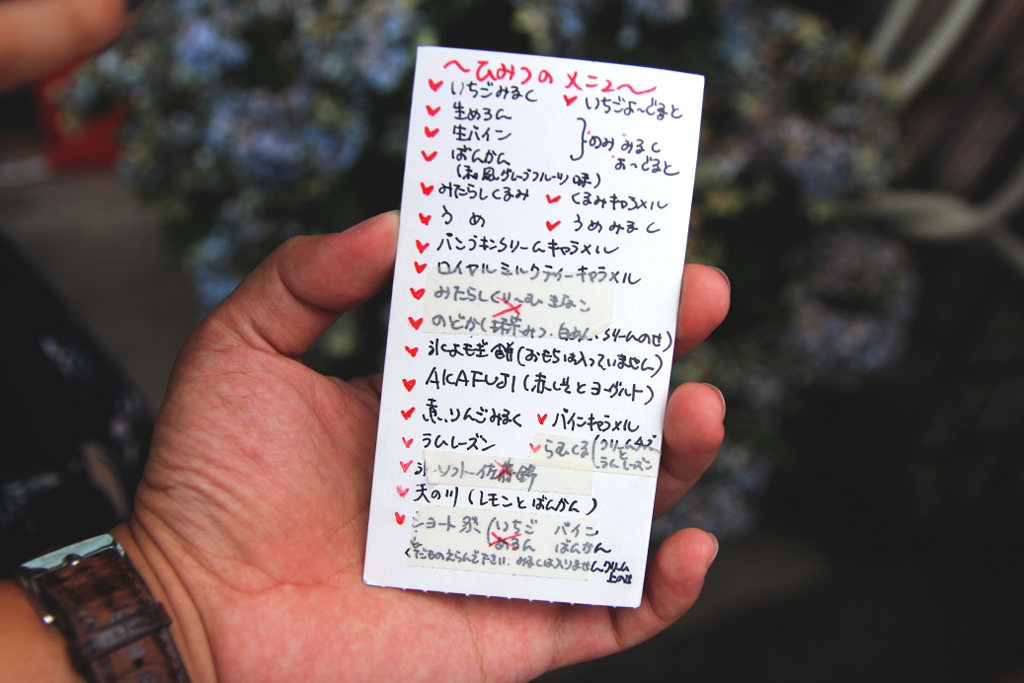 ～ひみつの メニュー～
いちごみるく いちごよ〜ぐると
生めろん
生パイン のみ みるく
ばんかん よーぐると
(和風グレープフルーツ味)
みたらしくるみ くるみキャラメル
うめ うめみるく
パンプキンクリームキャラメル
ロイヤルミルクティーキャラメル
みたらしくり〜む きなこ
のどか(抹茶みつ・白あん・クリームのせ)
氷よもぎ餅(おもちは入っていません)
AKAFUJI(赤しそとヨーグルト)
煮、りんごみるく パインキャラメル
ラムレーズン らむくる(クリームチーズ
と
ラムレーズン
氷・ソフトー佐藤錦
天の川(レモンとばんかん)
ショート祭(いちご パイン
めろん ばんかん
くだものえらんで下さい。みるくは入りません。クリーム
上のせ